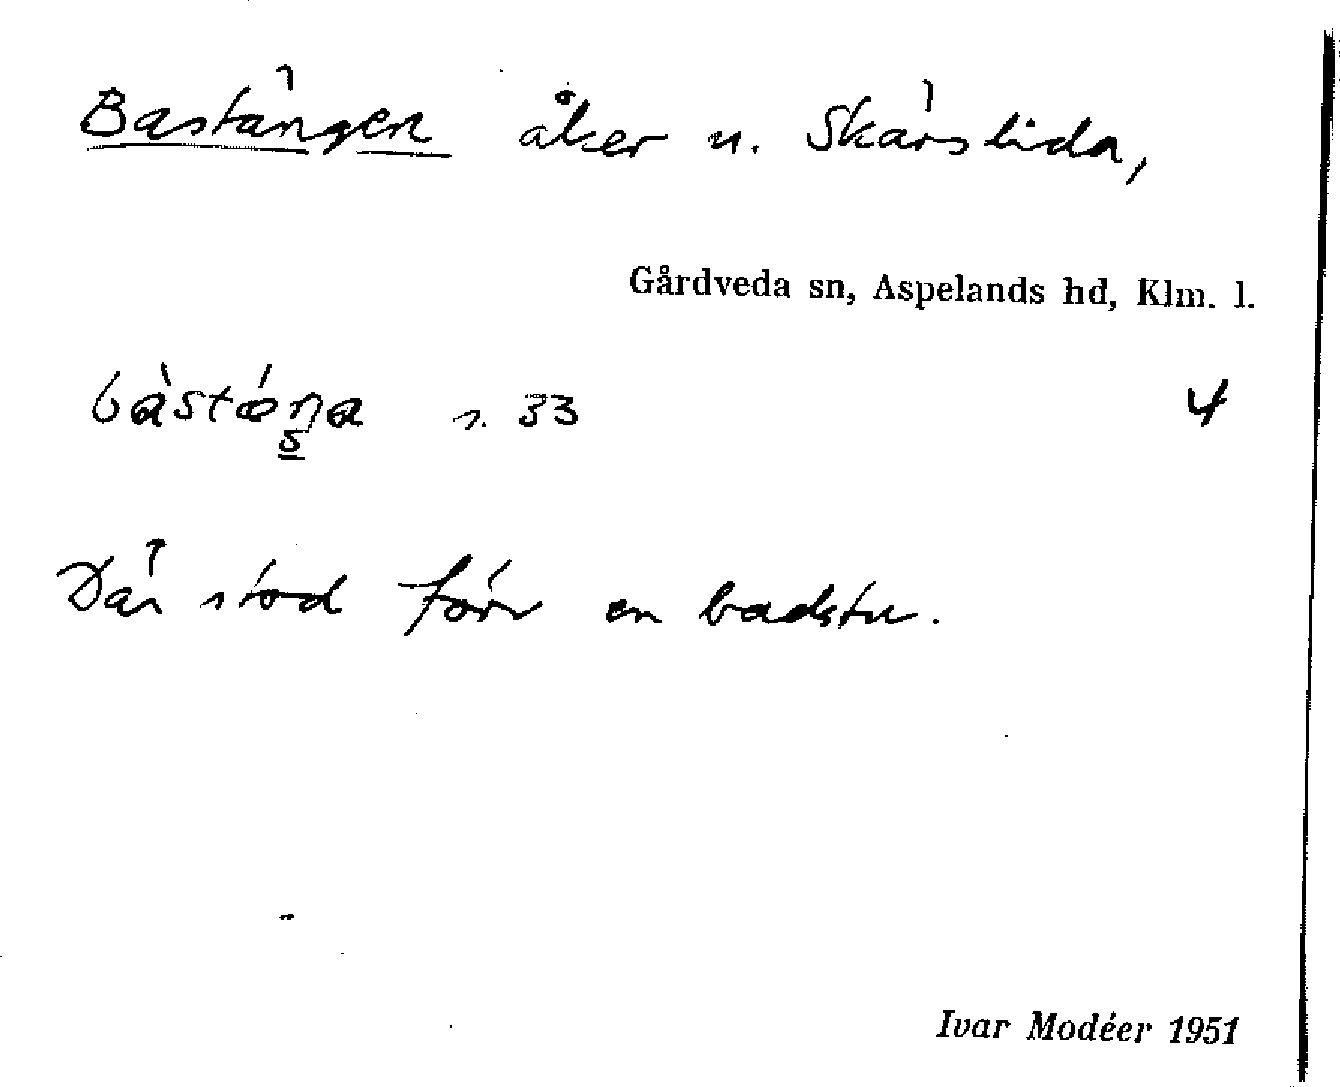 Bastängen åker u. Skärslida,
Gårdveda sn, Aspelands hd, Klm. l.
s. 33 4
Där stod förr en badstu.
Ivar Modéer 1951